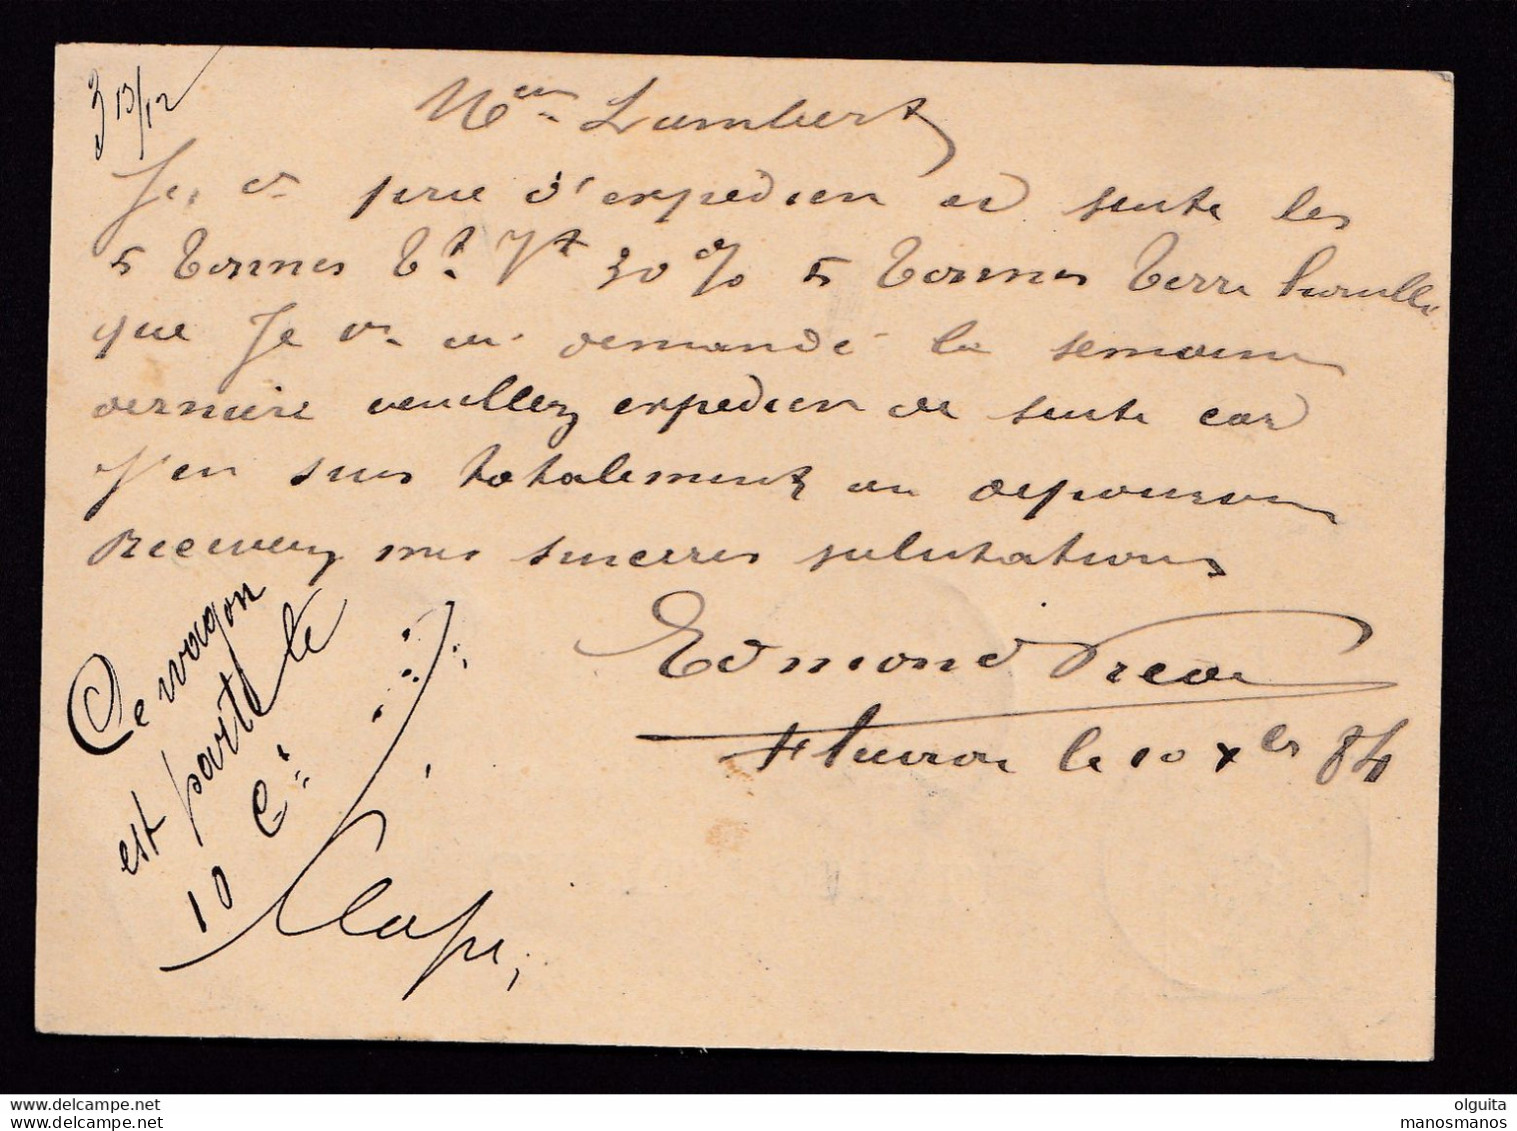 3 13/12
Lambert
Je v prie d'expedier de suite les
5 Tonnes 30 % 5 Tonnes Terre
que Je v ai demandé la semaine
dernière veuillez expedier de suite car
J'en suis totalement au depourvu
Recevez mes sinceres salutations
Edmond
le 10 Xbr 84
Ce wagon
est parti le
10 Ct
olguita
manosmanos